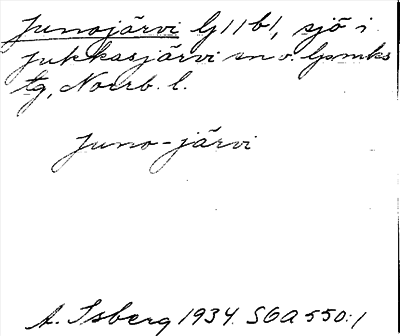 Junojärvi G11b1, sjö i
Jukkasjärvi sn o. lpmks
tg, Norrb. l.
Juno-järvi
A. Isberg 1934. SGA 550:1